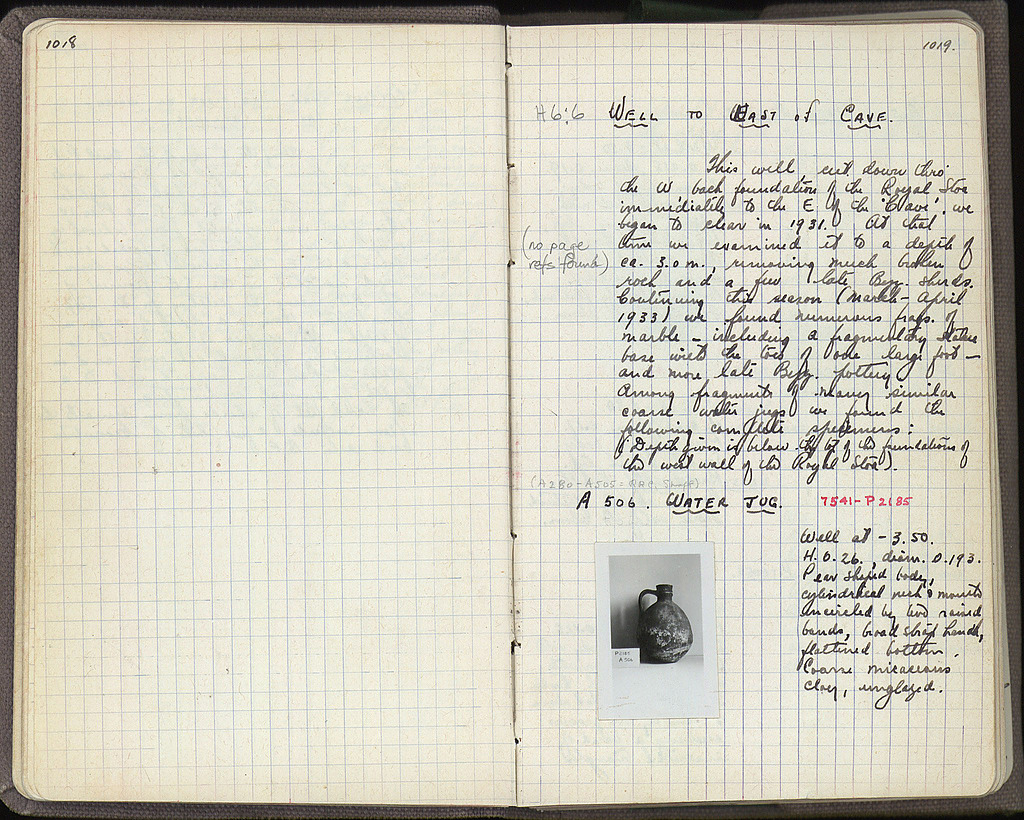 1018
1019.
H6:6 WELL TO EAST of CAVE.
This well, cut down thro
the W back foundation of the Royal Stoa
immediately to the E. of the 'Cave', we
began to clear in 1931. At that
time we examined it to a depth of
ca. 3.0 m., removing much broken
rock and a few late Byz. sherds.
Continuing this season (March - April
1933) we found numerous frags. of
marble - including a fragmentary statue
base with the toes of one large foot -
and more late Byz. pottery.
Among fragments of many similar
coarse water jugs we found the
following complete specimens:
(Depth given is below the bot of the foundations of
the west wall of the Royal Stoa).
(no page
refs found)
(A280-A505 = R.A.C. Shaft)
A 506. WATER JUG. 7541-P2185
Well at -3.50.
H. 0.26, diam. 0.193.
Pear shaped body,
cylindrical neck & mouth
encircled by two raised
bands, broad strap handle,
flattened bottom.
Coarse micaceous
clay, unglazed.
P2185
A506